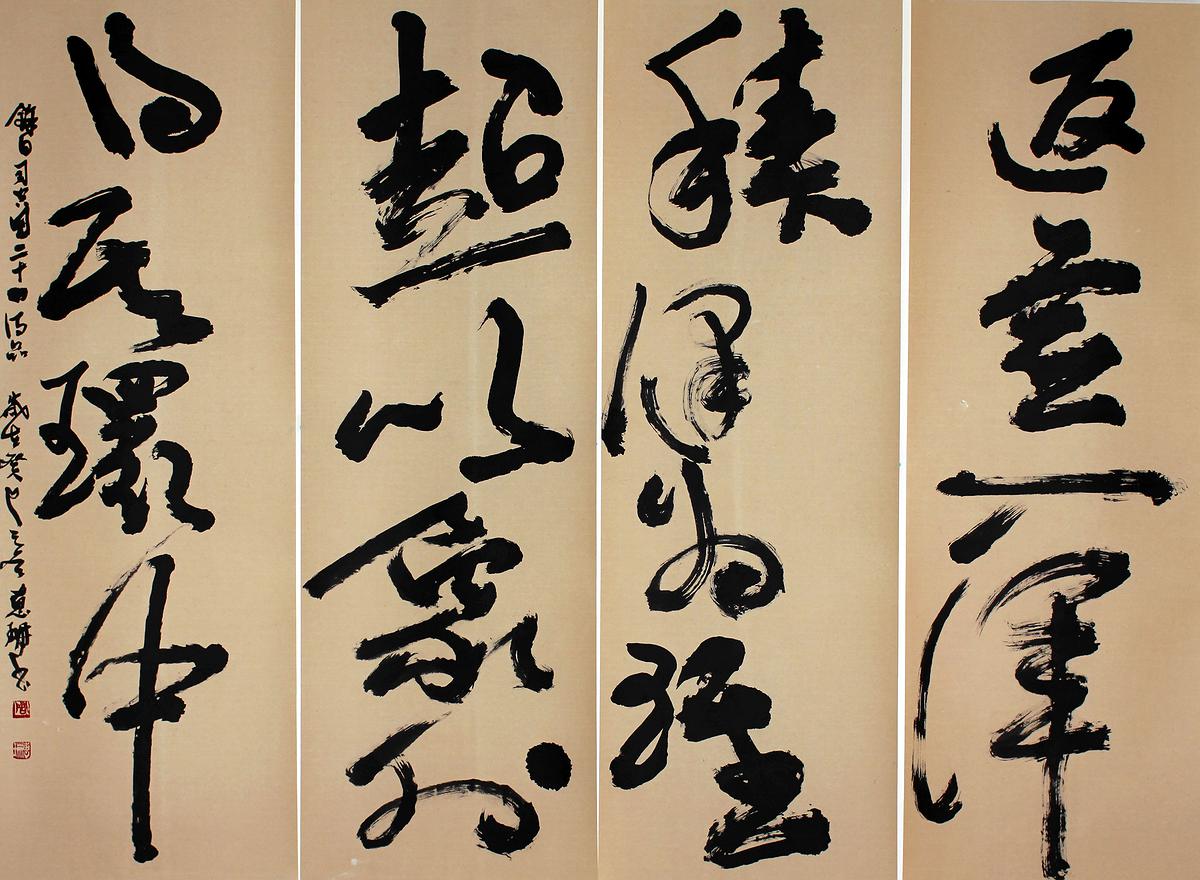 返虛一渾
積健為雄
超以象外
得其環中
錄自司空圖二十四詩品 歲在癸巳之 惠珊書